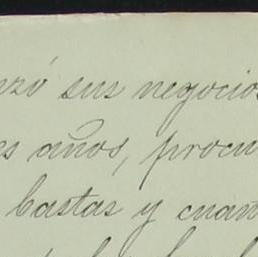 nzó sus negocios
es años, procu
bastas y cuan